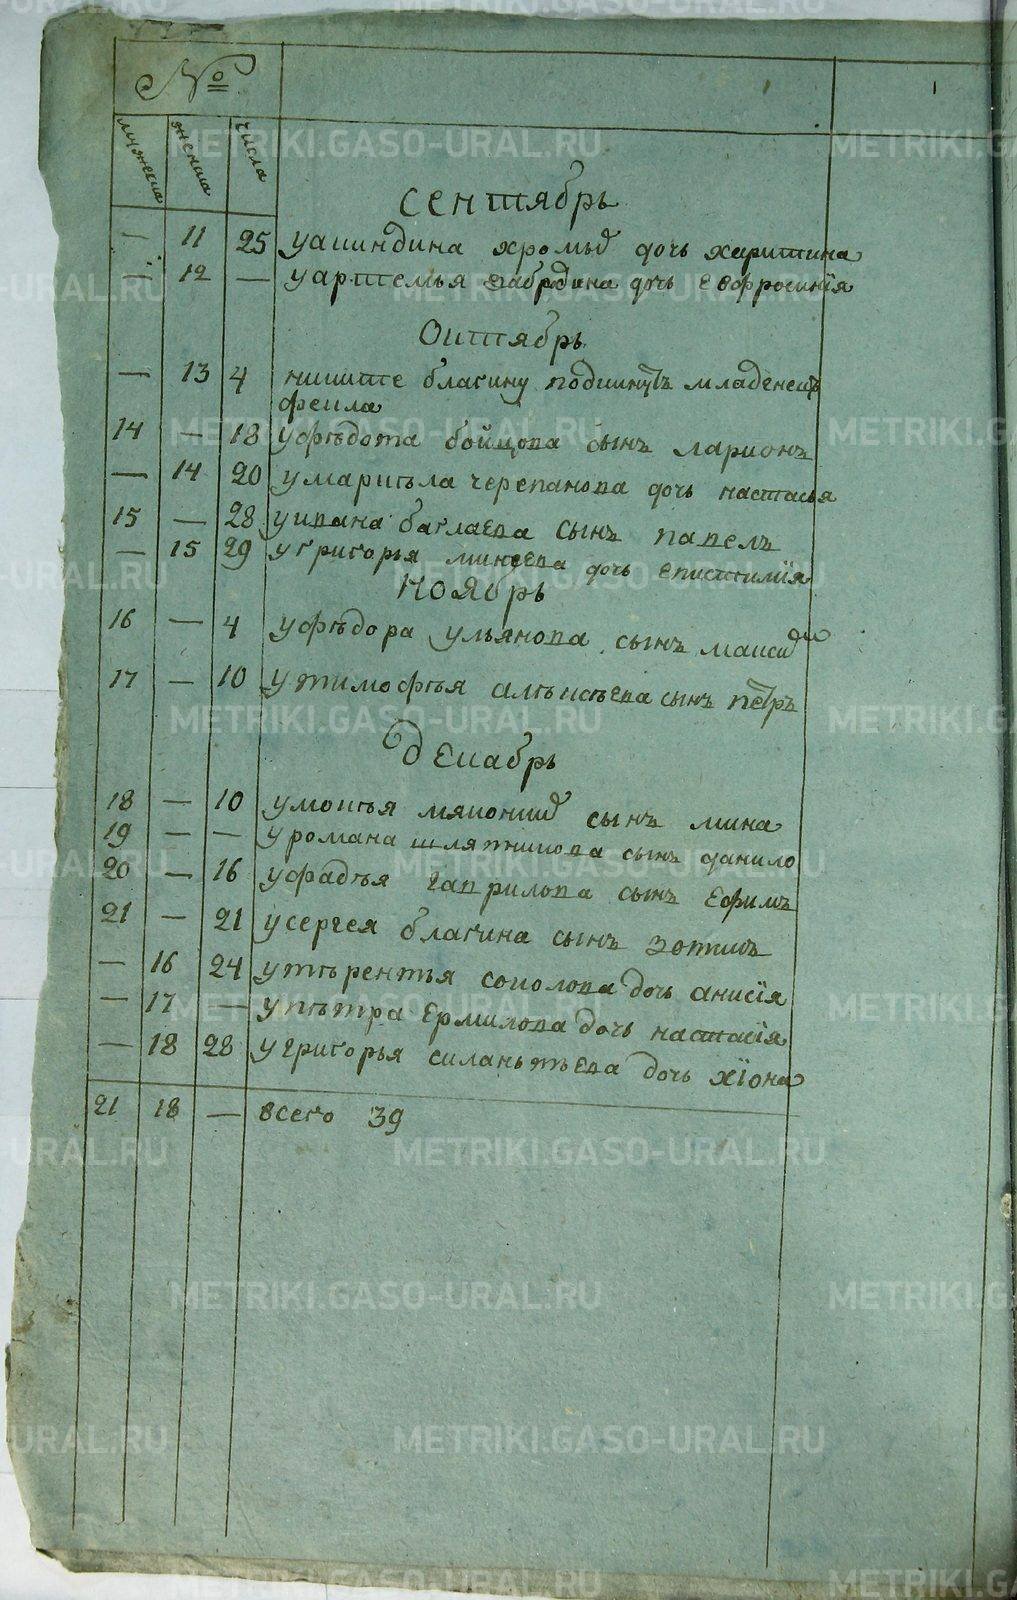 №
мужеска женска числа
сентябрь
— 11 25 у акиндина хромых дочь харитина
— 12 — у артемья дочь евфросинїя
Октябрь
— 13 4 никите благину подкинутъ младенецъ
фекла
14 — 18 у фѣдота бойцова сынъ ларионъ
— 14 20 у маркѣла черепанова дочь настасья
15 — 28 у ивана баглаева сынъ павелъ
— 15 29 у григорья минеева дочь епистимїя
Ноябрь
16 — 4 у фѣдора ульянова сынъ
17 — 10 у тимофѣя алѣксѣева сынъ пётръ
декабрь
18 — 10 у мокѣя сынъ мина
19 — — у романа шляпникова сынъ данило
20 — 16 у фадѣя гаврилова сынъ ефимъ
21 — 21 у сергея благина сынъ зотикъ
— 16 24 у тѣрентья соколова дочь анисїя
— 17 — у пѣтра ермилова дочь настасїя
— 18 28 у григорья силаньтьева дочь хїона
21 18 — всего 39
METRIKI.GASO-URAL.RU